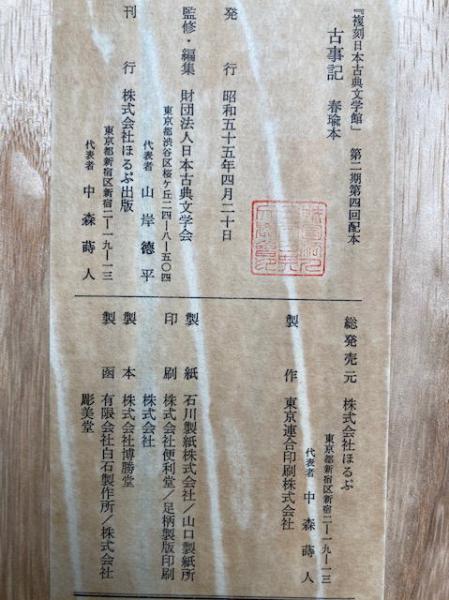 『複刻日本古典文学館』 第二期第四回配本
古事記 春瑜本
発行 昭和五十五年四月二十日
監修・編集 財団法人日本古典文学会
東京都渋谷区桜ケ丘二四―八―五〇四
代表者 山岸徳平
刊行 株式会社ほるぷ出版
東京都新宿区新宿二―一九―一三
代表者 中森蒔人
総発売元 株式会社ほるぷ
東京都新宿区新宿二―一九―一三
代表者 中森蒔人
製作 東京連合印刷株式会社
製紙 石川製紙株式会社/山口製紙所
印刷 株式会社便利堂/足柄製版印刷
株式会社
製本 株式会社博勝堂
製函 有限会社白石製作所/株式会社
彫美堂